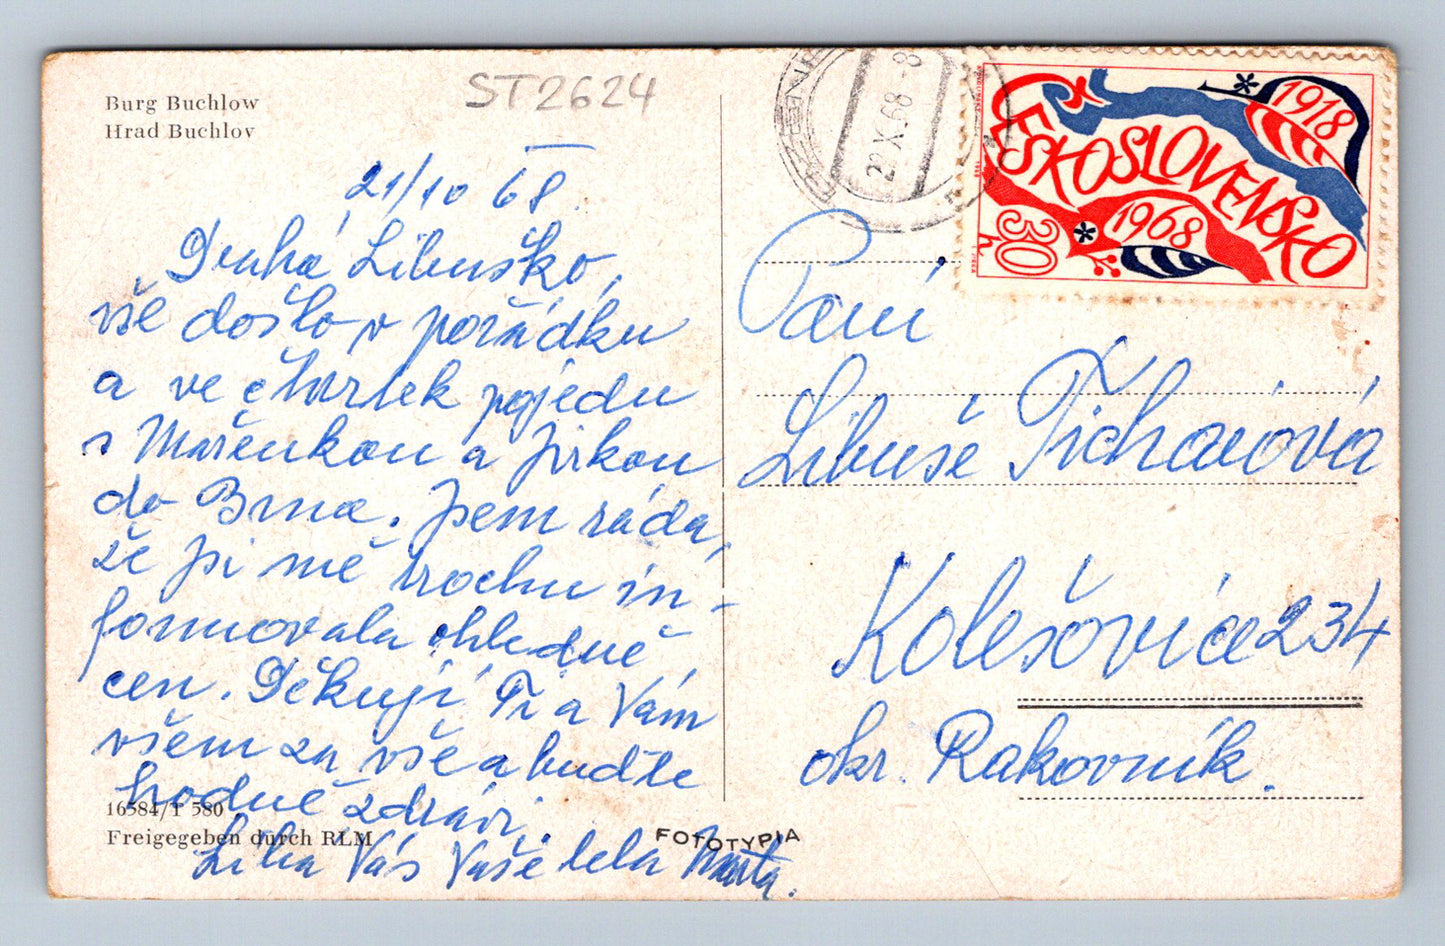 Burg Buchlow
Hrad Buchlov
ST2624
21/10 68.
Drahá Libuško,
vše došlo v pořádku
a ve čtvrtek pojedu
s Mařenkou a Jirkou
do Brna. Jsem ráda,
že jsi mě trochu in-
formovala ohledně
cen. Děkuji Ti a Vám
všem za vše a buďte
hodně zdrávi.
Líbá Vás Vaše teta Marta.
16584/T 580
Freigegeben durch RLM
FOTOTYPIA
22.X.68-8
ČESKOSLOVENSKO
1918
1968
30 h
Paní
Libuše Tichá
Kolešovice 234
okr. Rakovník.